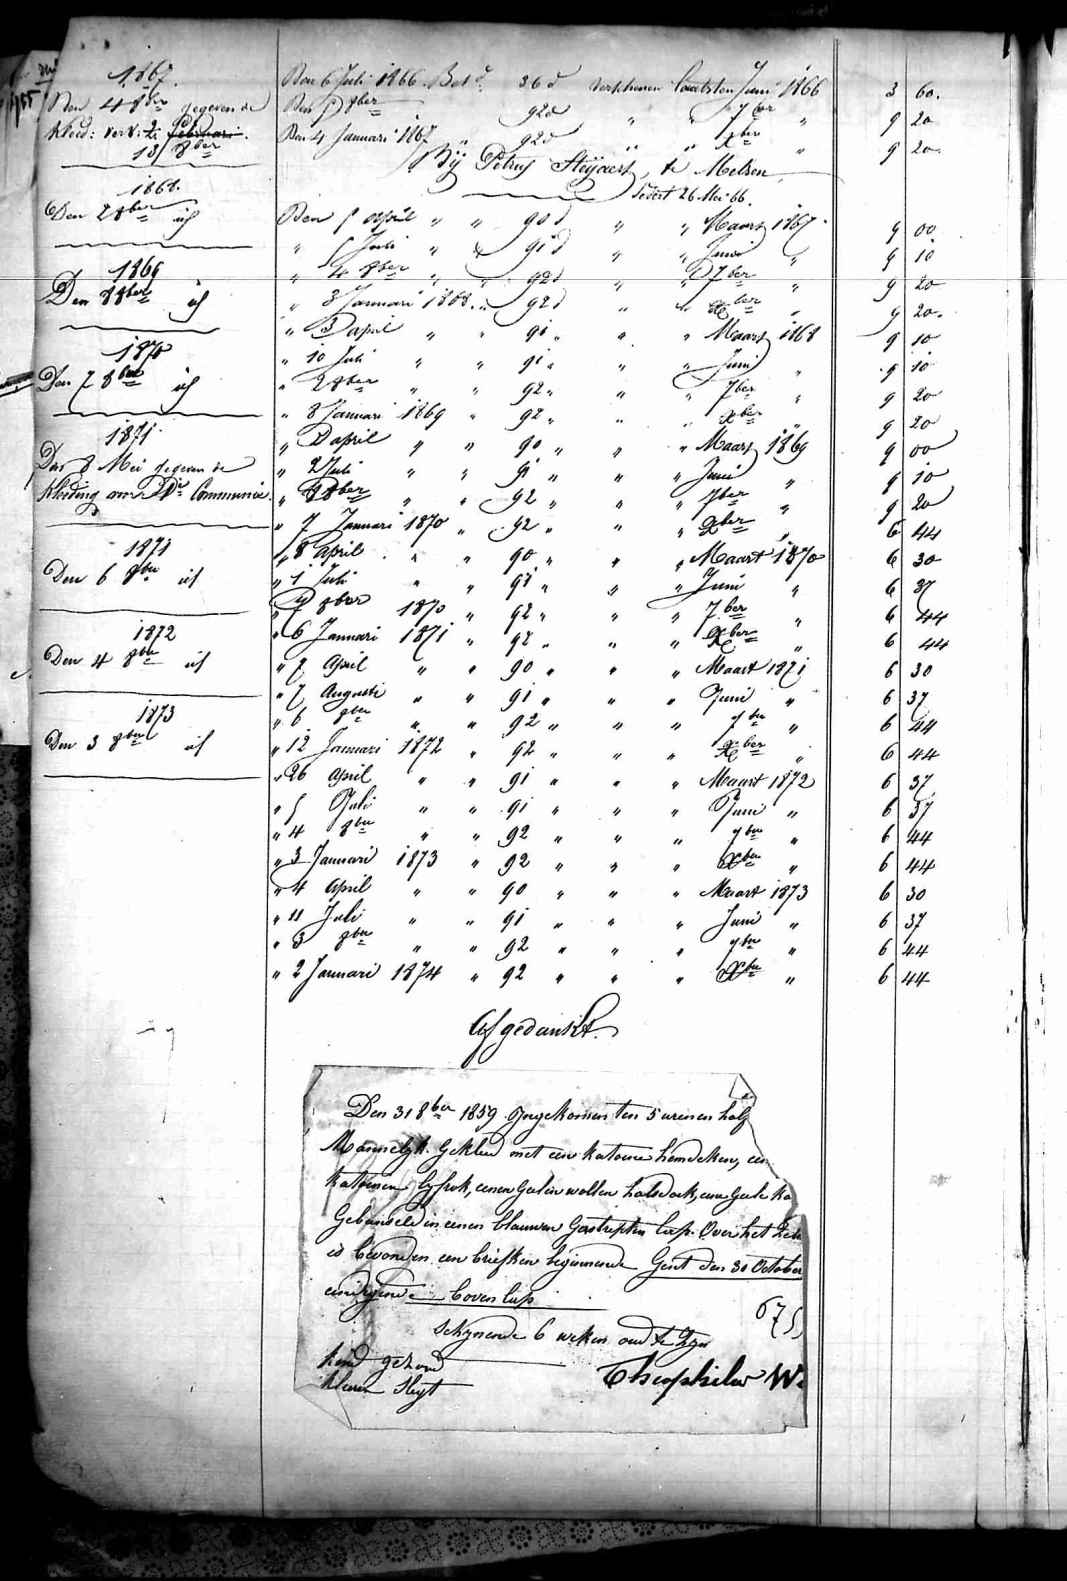 1867.
Den 4 8ber gegeven de
kleed: verv: 2: Februari.
13/ 8ber
1868.
Den 2 8ber id
1869
Den 8 8ber id
1870
Den 7 8ber id
1871
Den 8 Mei gegeven de
kleding voor 1e Communie.
1871
Den 6 8ber id
1872
Den 4 8ber id
1873
Den 3 8ber id
Den 6 Juli 1866 Betd 36 d verschenen laatsten Juni 1866 3 60.
Den 5 8ber 92d " " 7ber " 9 20
Den 4 Januari 1867 " 92d " " Xber " 9 20
Bij Petrus Steyaert, te Melsen
sedert 26 Mei 66.
Den 5 april " " 90 d " " Maart 1867 9 00
" 5 Juli " " 91 d " " Juni " 9 10
" 4 8ber " " 92d " " 7ber " 9 20
" 3 Januari 1868 " 92d " " Xber " 9 20
" 3 april " " 91 " " " Maart 1868 9 10
" 10 Juli " " 91 " " " Juni " 9 10
" 2 8ber " " 92 " " " 7ber " 9 20
" 8 Januari 1869 " 92 " " " Xber " 9 20
" 2 april " " 90 " " " Maart 1869 9 00
" 2 Juli " " 91 " " " Juni " 9 10
" 8 8ber " " 92 " " " 7ber " 9 20
" 7 Januari 1870 " 92 " " " Xber 6 44
" 8 april " " 90 " " " Maart 1870 6 30
" 1 Juli " " 91 " " " Juni " 6 37
" 7 8ber 1870 " 92 " " " 7ber " 6 44
" 6 Januari 1871 " 92 " " " Xber 6 44
" 7 April " " 90 " " " Maart 1871 6 30
" 7 Augusti " " 91 " " " Juni " 6 37
" 6 8ber " " 92 " " " 7ber " 6 44
" 12 Januari 1872 " 92 " " " Xber " 6 44
" 26 April " " 91 " " " Maart 1872 6 37
" 5 Juli " " 91 " " " Juni " 6 37
" 4 8ber " " 92 " " " 7ber " 6 44
" 3 Januari 1873 " 92 " " " Xber " 6 44
" 4 April " " 90 " " " Maart 1873 6 30
" 11 Juli " " 91 " " " Juni " 6 37
" 3 8ber " " 92 " " " 7ber " 6 44
" 2 Januari 1874 " 92 " " " Xber " 6 44
Afgedankt.
Den 31 8ber 1859 Ingekomen ten 5 urenen half
Mannelyk. Gekleed met een katoene hemdeken, een
katoenen lyfrok, eenen Geelen wollen halsdoek, eene Geele ka
Gebunseld in eenen blauwen Gestreepten lap. Over het
is bevonden een briefken beginnende Gent den 30 October
eindigende boven lap
675
Schynende 6 weken oud te zyn
kind gezond
kleren slegt
Theophilus W.